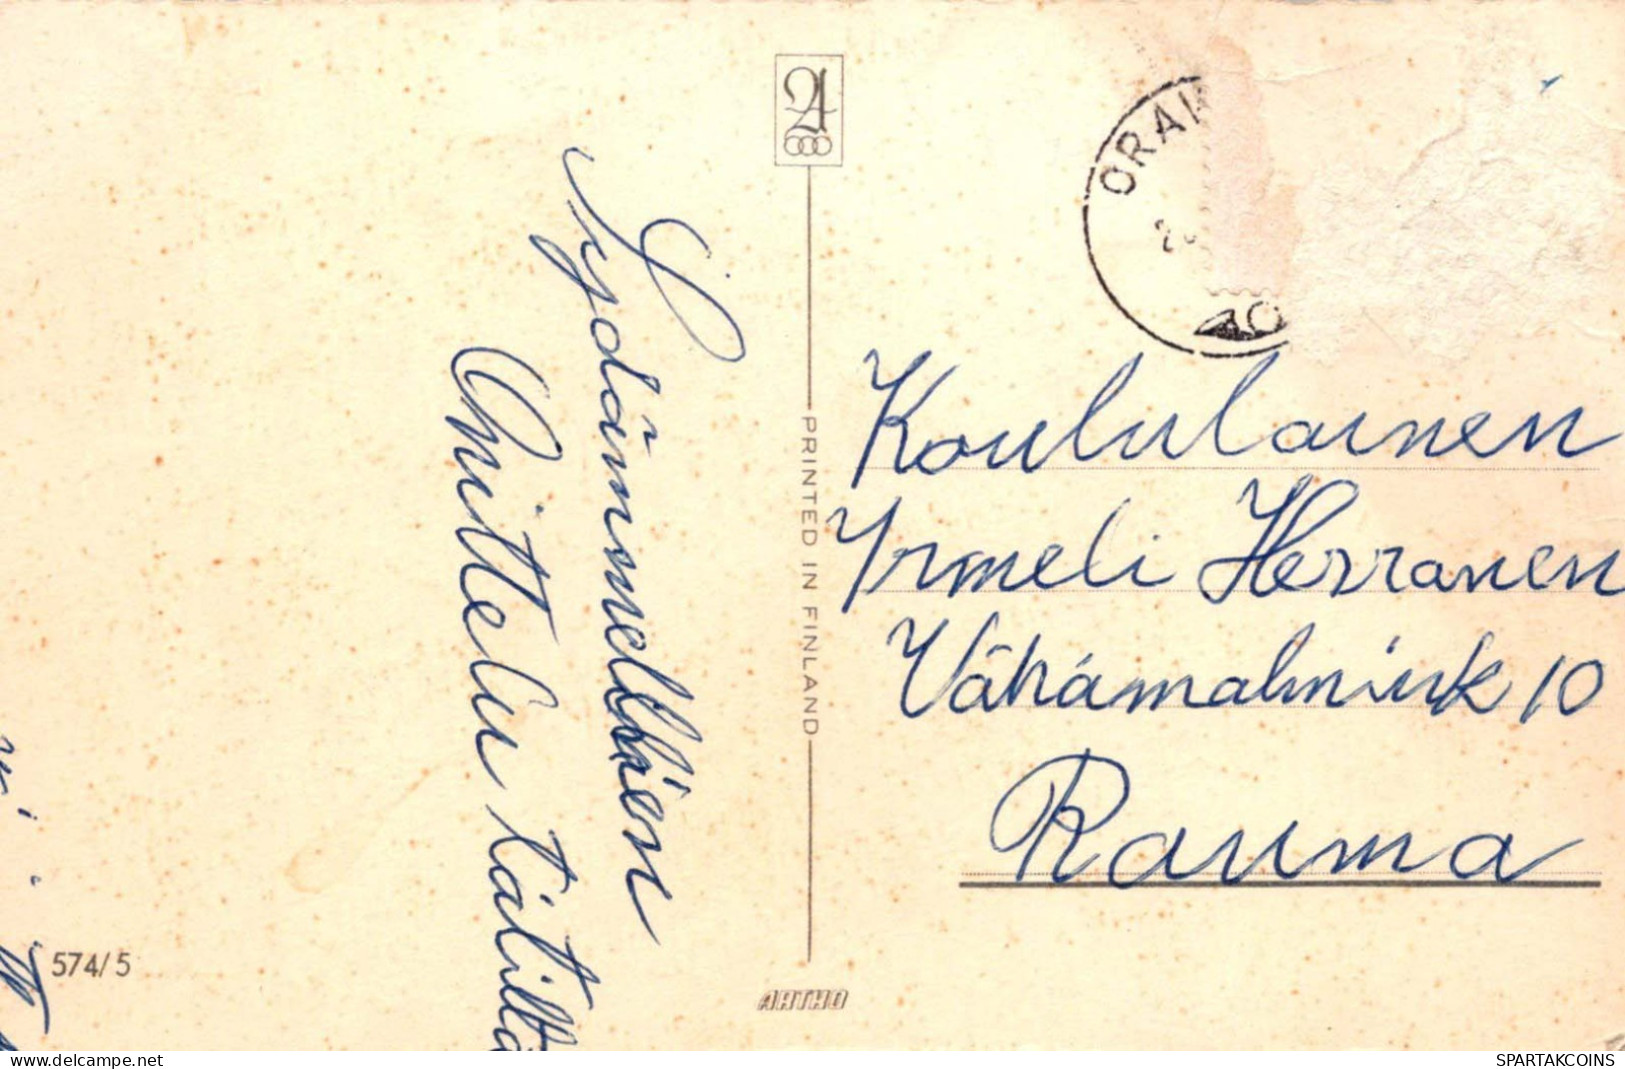 Sydämmellisen
Onnittelu tätiltä
574/5
PRINTED IN FINLAND
ARTHO
ORAI
10
Koululainen
Irmeli Herranen
Vähämalmink 10
Rauma
www.delcampe.net
SPARTAKCOINS